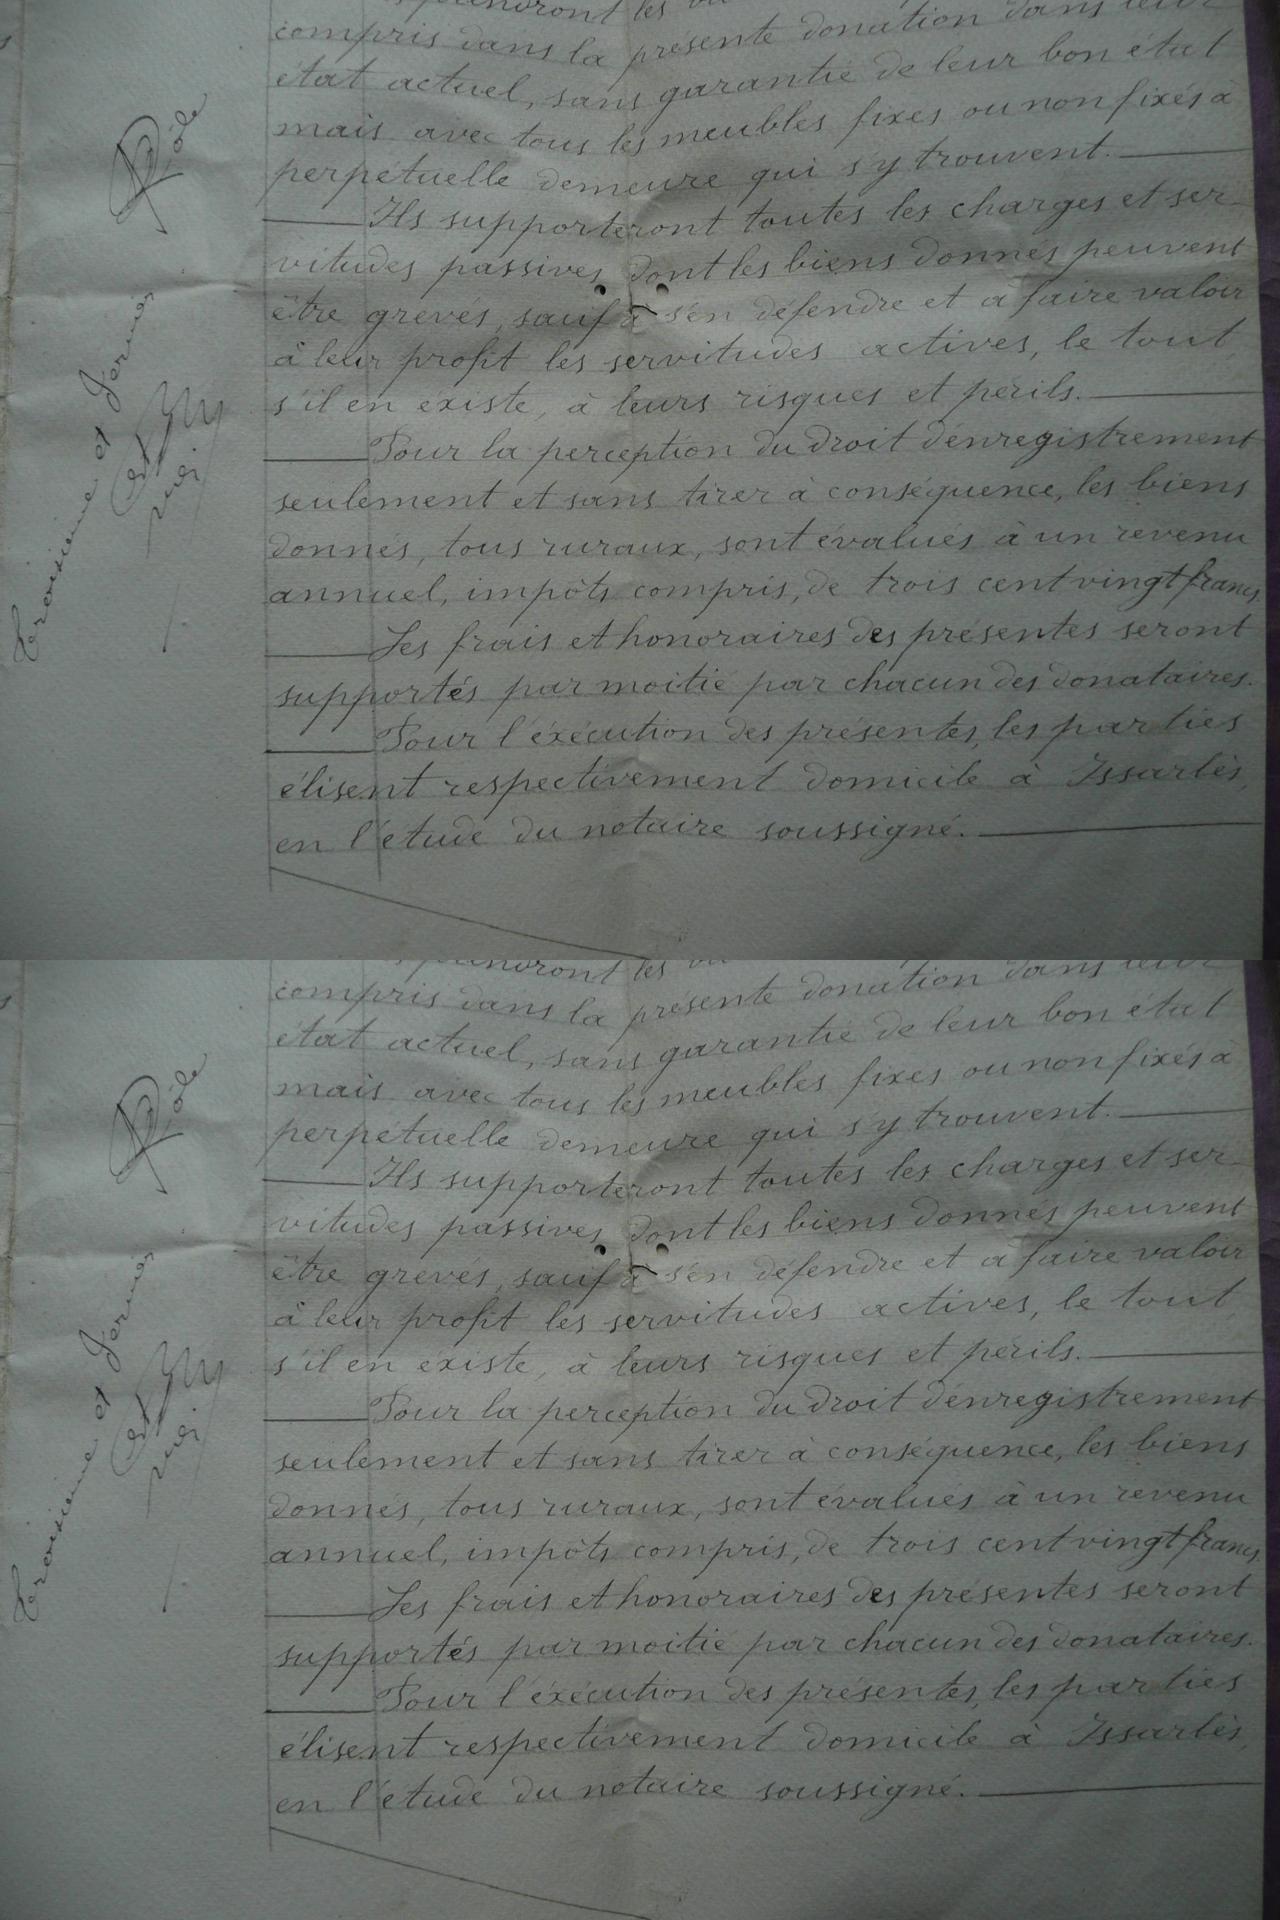 prendront les
compris dans la présente donation dans leur
état actuel, sans garantie de leur bon état
mais avec tous les meubles fixes ou non fixés à
perpétuelle demeure qui s'y trouvent.
Ils supporteront toutes les charges et ser-
vitudes passives dont les biens donnés peuvent
être grevés, sauf à s'en défendre et à faire valoir
à leur profit les servitudes actives, le tout,
s'il en éxiste, à leurs risques et périls.
Pour la perception du droit d'enregistrement
seulement et sans tirer à conséquence, les biens
donnés, tous ruraux, sont évalués à un revenu
annuel, impôts compris, de trois cent vingt francs.
Les frais et honoraires des présentes seront
supportés par moitié par chacun des donataires.
Pour l'éxécution des présentes, les parties
élisent respectivement domicile à Issarlès,
en l'étude du notaire soussigné.
Troisième et dernier
Rôle
prendront les
compris dans la présente donation dans leur
état actuel, sans garantie de leur bon état
mais avec tous les meubles fixes ou non fixés à
perpétuelle demeure qui s'y trouvent.
Ils supporteront toutes les charges et ser-
vitudes passives dont les biens donnés peuvent
être grevés, sauf à s'en défendre et à faire valoir
à leur profit les servitudes actives, le tout,
s'il en éxiste, à leurs risques et périls.
Pour la perception du droit d'enregistrement
seulement et sans tirer à conséquence, les biens
donnés, tous ruraux, sont évalués à un revenu
annuel, impôts compris, de trois cent vingt francs.
Les frais et honoraires des présentes seront
supportés par moitié par chacun des donataires.
Pour l'éxécution des présentes, les parties
élisent respectivement domicile à Issarlès,
en l'étude du notaire soussigné.
Troisième et dernier
Rôle